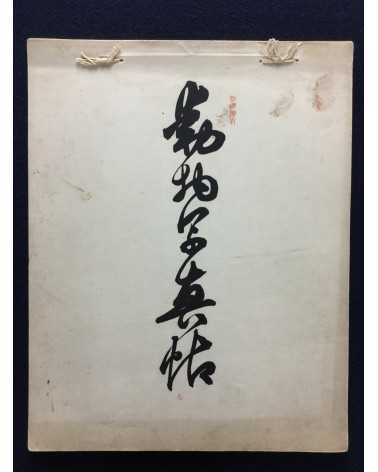 動物写真帖